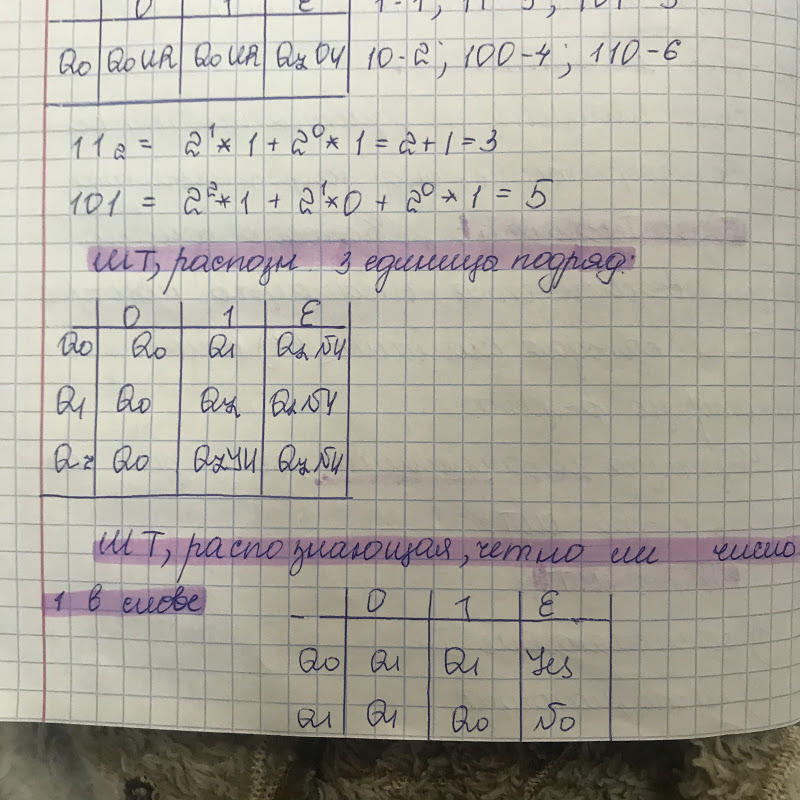 0 1 E 1-1; 11-3; 101-5
Q0 Q0ИR Q0ИR QzОЧ 10-2; 100-4; 110-6
11₂ = 2¹*1 + 2⁰*1 = 2+1=3
101 = 2²*1 + 2¹*0 + 2⁰*1 = 5
МТ, распозн. 3 единица подряд:
0 1 E
Q0 Q0 Q1 QzNЧ
Q1 Q0 Qz QzNЧ
Qz Q0 QzУЧ QzNЧ
МТ, распознающая, четно ли число
1 в слове
0 1 E
Q0 Q1 Q1 Yes
Q1 Q1 Q0 No